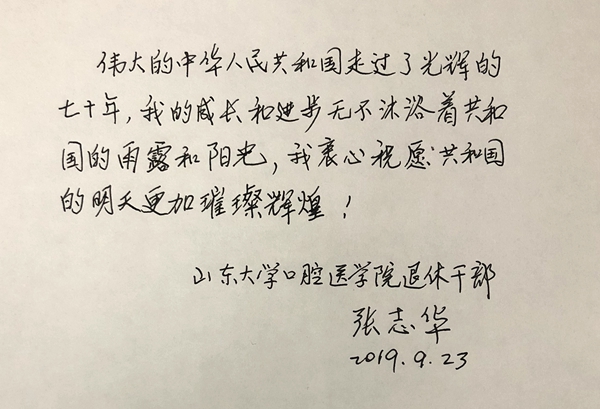 伟大的中华人民共和国走过了光辉的
七十年，我的成长和进步无不沐浴着共和
国的雨露和阳光，我衷心祝愿共和国
的明天更加璀璨辉煌！
山东大学口腔医学院退休干部
张志华
2019.9.23